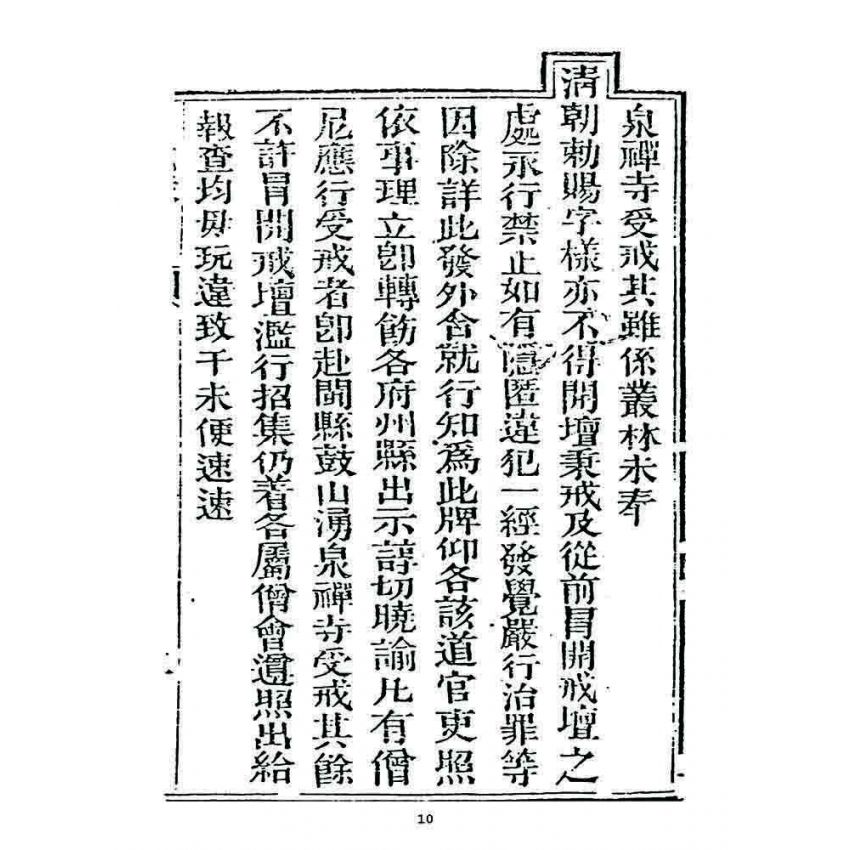 泉禪寺受戒其雖係叢林未奉
清朝勅賜字樣亦不得開壇秉戒及從前冒開戒壇之
處永行禁止如有隱匿違犯一經發覺嚴行治罪等
因除詳此發外合就行知為此牌仰各該道官吏照
依事理立卽轉飭各府州縣出示諄切曉諭凡有僧
尼應行受戒者卽赴閩縣鼓山湧泉禪寺受戒其餘
不許冒開戒壇濫行招集仍着各屬僧會遵照出給
報查均毋玩違致干未便速速
10